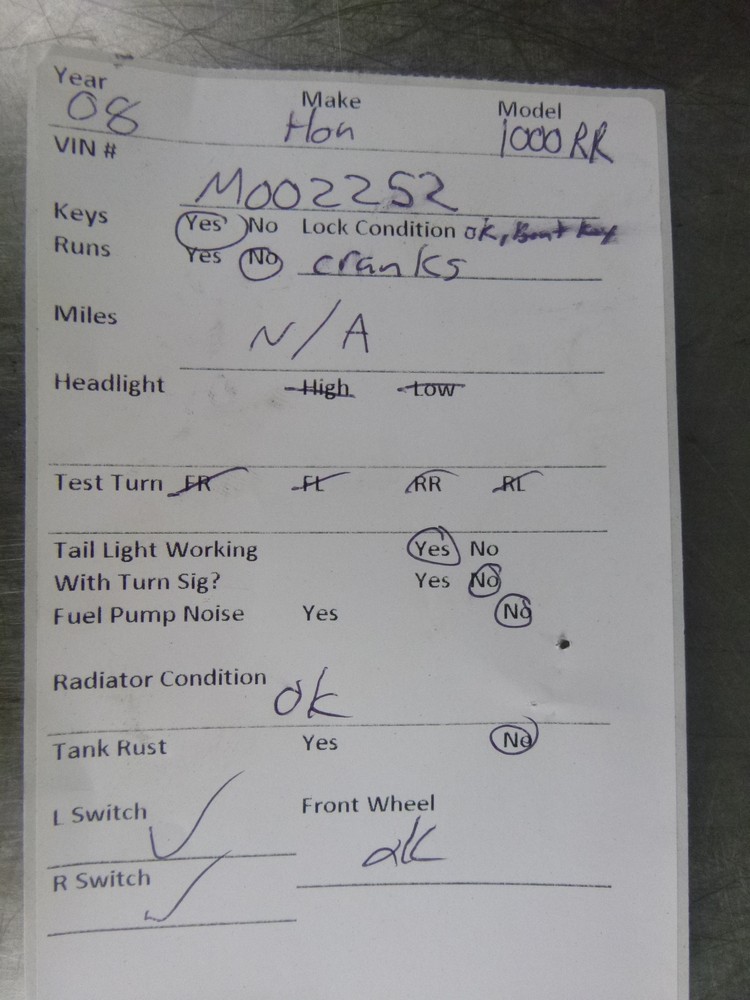 Year Make Model
08 Hon 1000RR
VIN #
M002252
Keys Yes No Lock Condition ok, Bent key
Runs Yes No cranks
Miles N/A
Headlight High Low
Test Turn FR FL RR RL
Tail Light Working Yes No
With Turn Sig? Yes No
Fuel Pump Noise Yes No
Radiator Condition ok
Tank Rust Yes No
L Switch Front Wheel
ok
R Switch